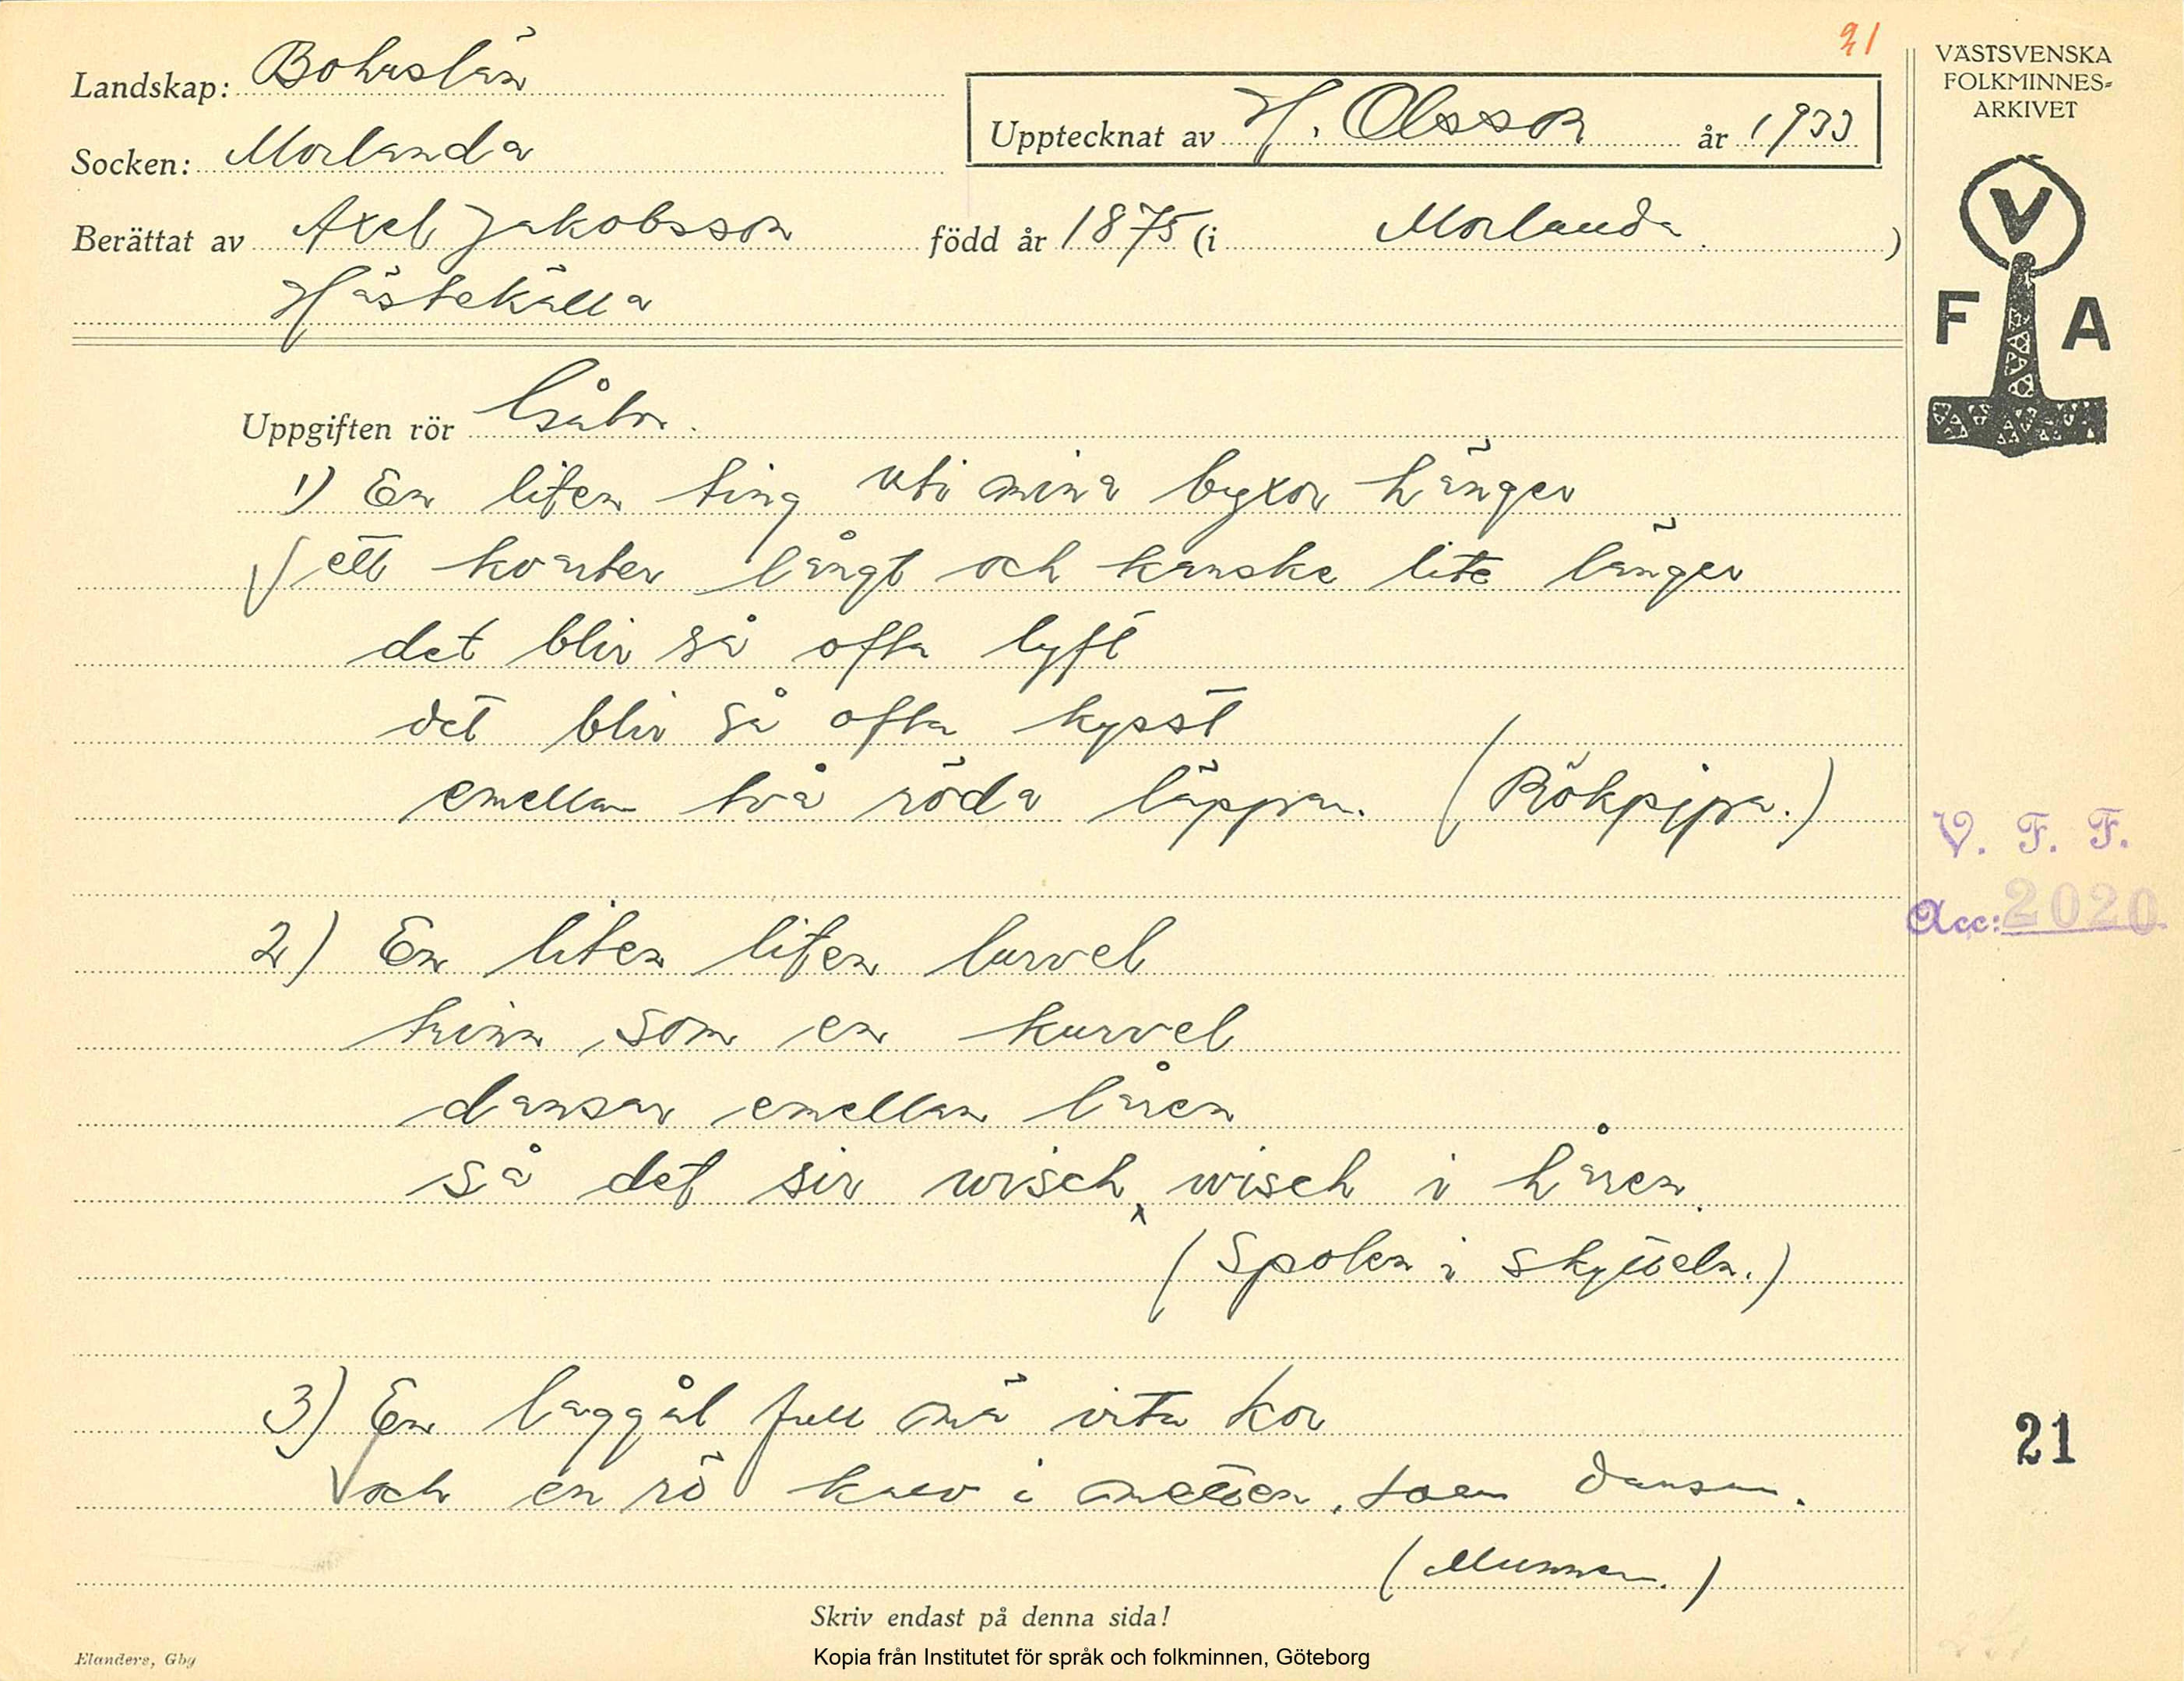 21
Landskap: Bohuslän
Upptecknat av H. Olsson år 1933
Socken: Morlanda
Berättat av Axel Jakobsson född år 1875 (i Morlanda.)
Hästekälla
VÄSTSVENSKA
FOLKMINNES-
ARKIVET
V
F A
Uppgiften rör Gåtor.
1) En liten ting uti mina byxor hänger
ett kvarter långt och kanske lite länger
det blir så ofta lyft
det blir så ofta kysst
emellan två röda läppar. (Rökpipa.)
V. F. F.
Acc: 2020
2) En liten liten lurvel
trinn som en kurvel
dansar emellan låren
så det sir wisch, wisch i håren.
(Spolen i skytteln.)
3) En laggål full mä vita kor
och en rö kalv i metten, som dansar.
(Munnen.)
21
Skriv endast på denna sida!
Kopia från Institutet för språk och folkminnen, Göteborg
Elanders, Gbg